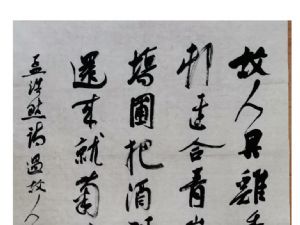 故人具雞黍
邨邊合青山
場圃把酒話
還來就菊
孟浩然詩過故人